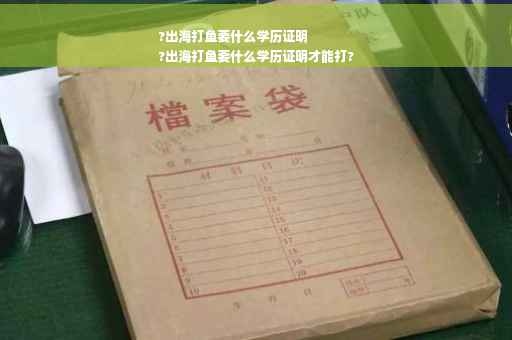 ?出海打鱼要什么学历证明
?出海打鱼要什么学历证明才能打?
檔案袋
材料目次
1 11
2 12
3 13
4 14
5 15
6 16
7 17
8 18
9 19
10 20
年 月 日